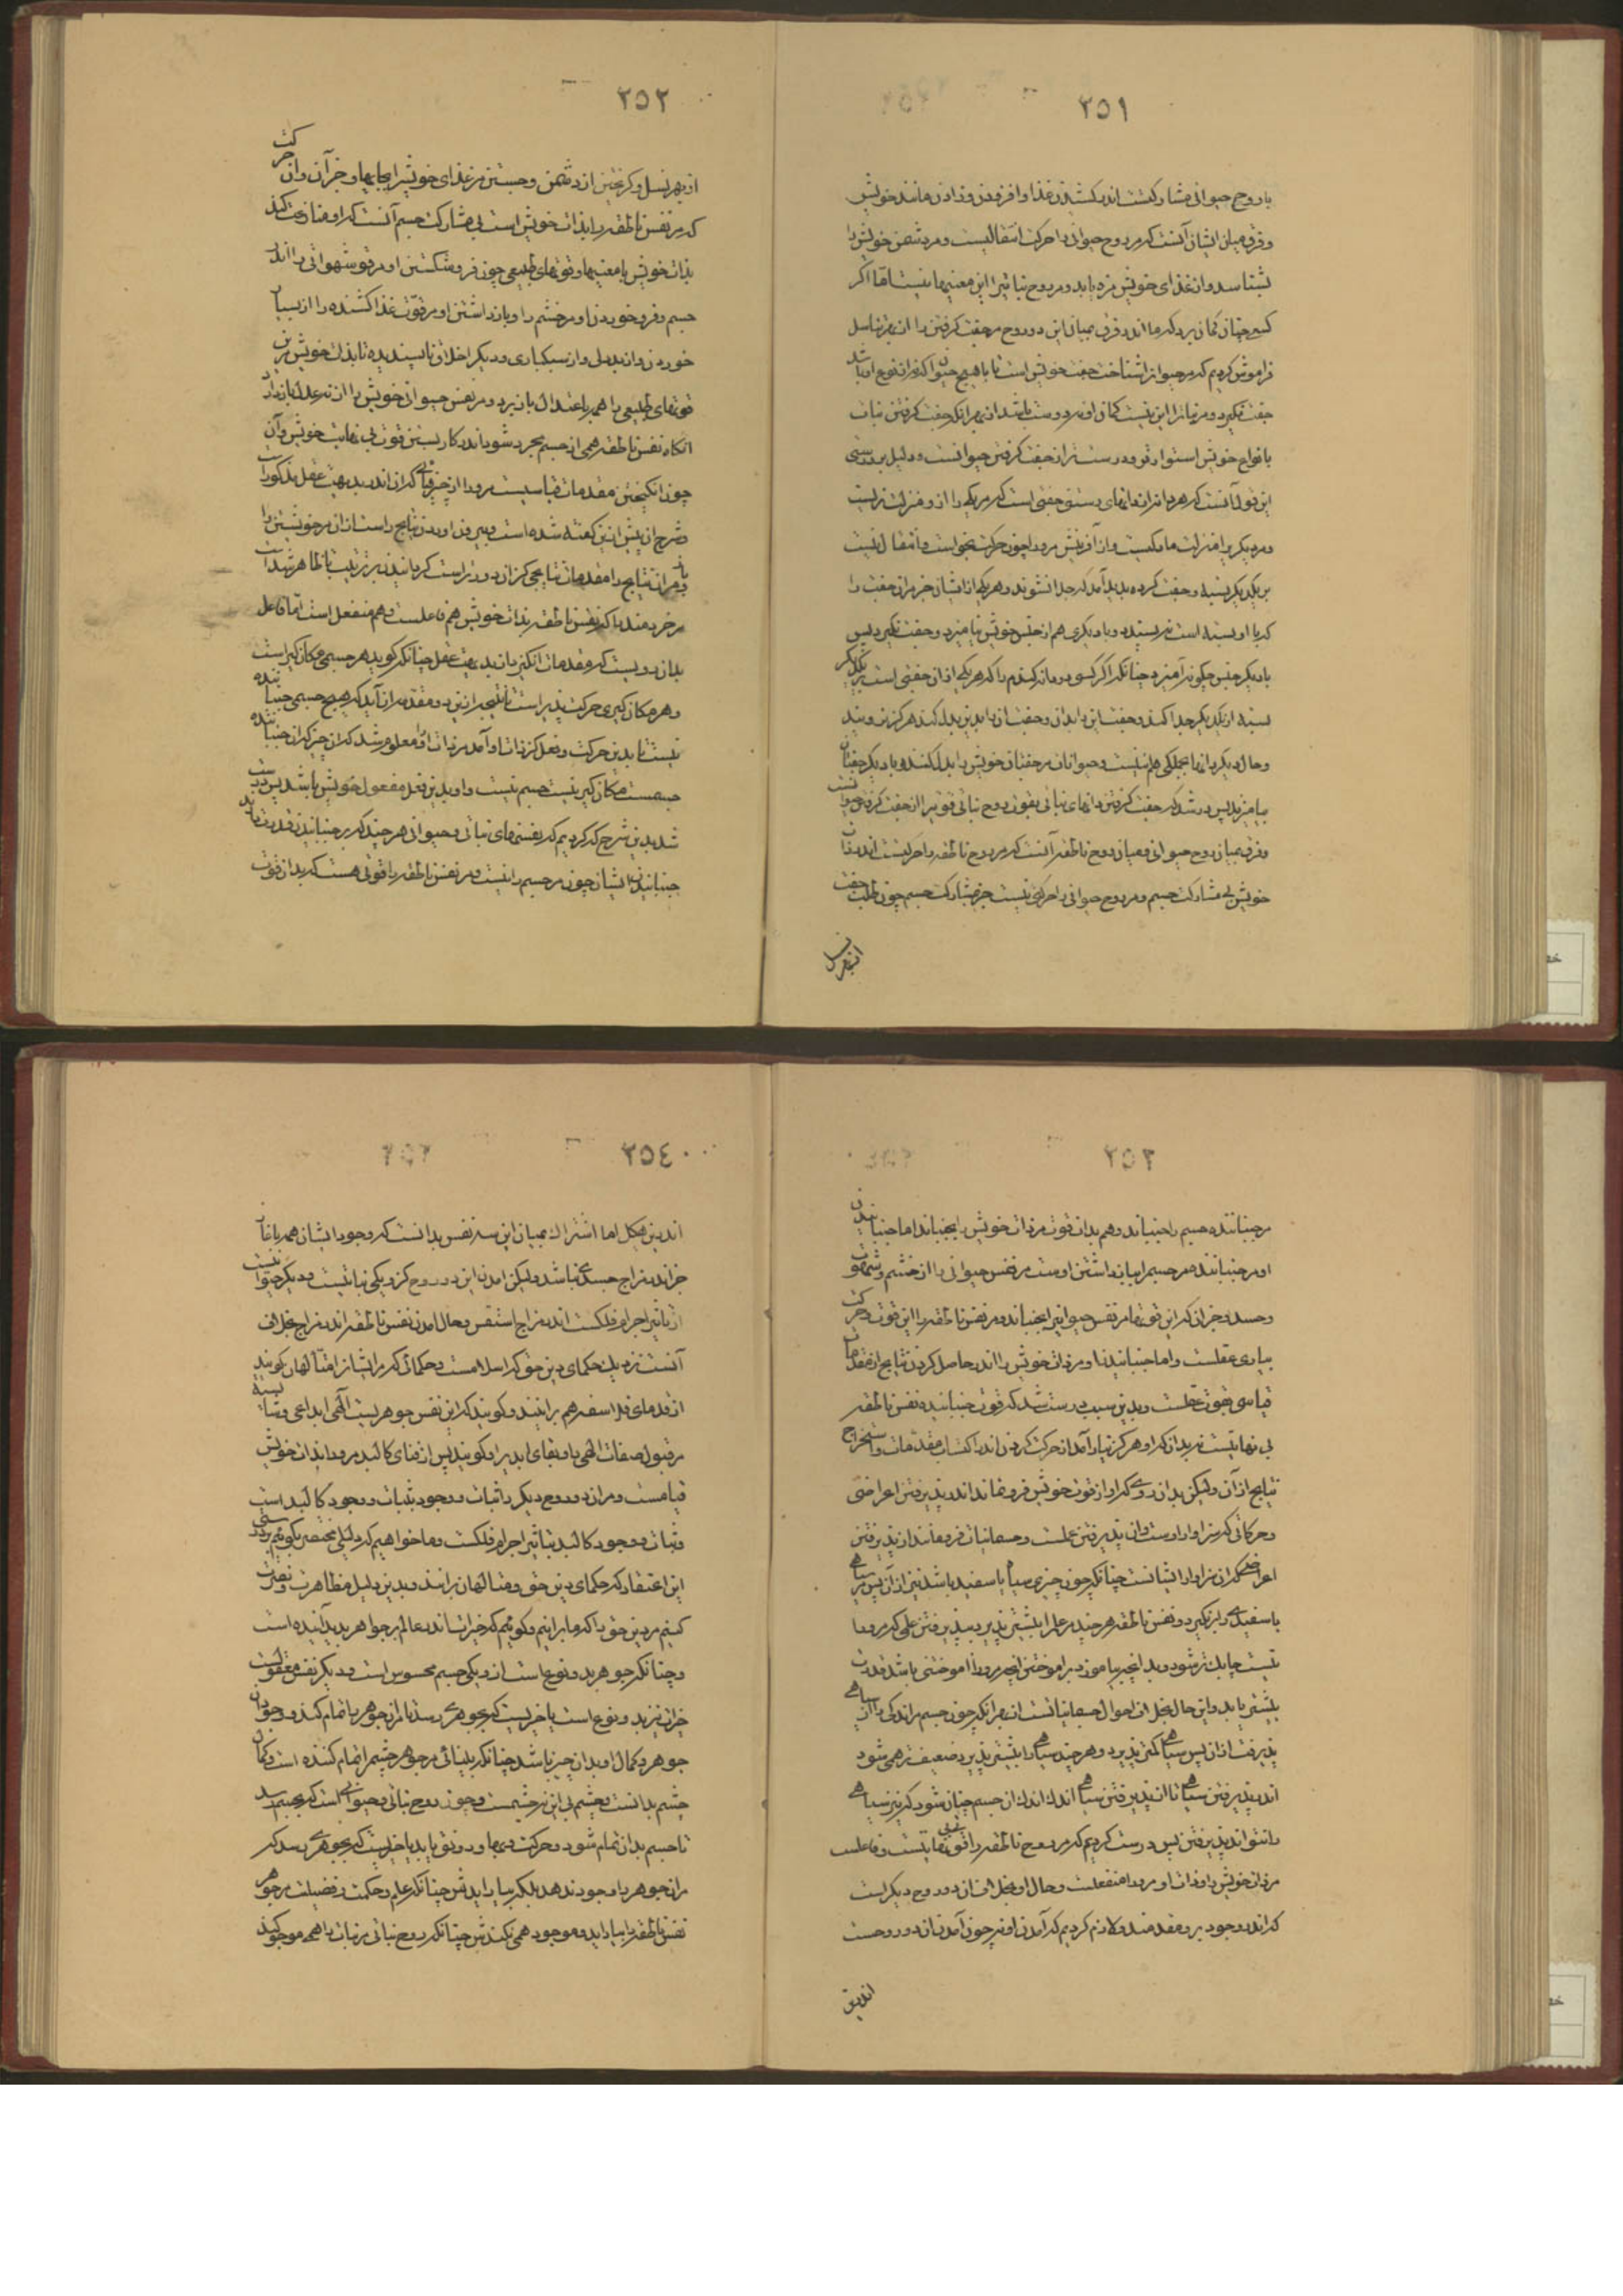 ٢٥١
با روح حیوانی مشارکتست اندر کشیدن غذا و افزودن و زادن مانند خویش
و فرق میان ایشان آنست که مر روح حیوانی را حرکت انتقالیست و مر دشمن خویش را
بشناسد و از غذای خویش مزه یابد و مر روح نباتی را این معنیها نیست اما اگر
کسی چنان گمان برد که ما اندر فرق میان این دو روح مر جفت گرفتن را از بهر تناسل
فراموش کردیم که مر حیوان را شناخت جفت خویش است تا با هیچ حیوان که نه از نوع او باشد
جفت نگیرد و مر نبات را این نیست گمان او نه درست باشد از بهر آنکه جفت گرفتن نبات
با نواع خویش استوارتر و درست تر از جفت گرفتن حیوانست و دلیل بر درستی
این قول آنست که هر دانه از دانهای رستنی جفتی است که مر یکی را از او منزلت نریست
و مر دیگر را منزلت مادگیست و از آفرینش مر او را چون حرکت نخواست و انتقال نیست
بر یکدیگر بسته و جفت کرده پدید آمد که جدا نشوند و هر یکی از ایشان جز مر آن جفت را
که با او بسته است نپسندد و با دیگری هم از جنس خویش نیامیزد و جفت نگیرد پس
با دیگر جنس چگونه آمیزد چنانکه اگر کسی دو دانه گندم را که هر یکی از آن جفتی است بر یکدیگر
بسته از یکدیگر جدا کند و جفت این را بدان و جفت آن را بدین بدل کند هرگز نروید
و حال دیگر دانها بجملگی همین است و حیوانات مر جفتان خویش را بدل کنند و با دیگر جفتان
بیامیزند پس درست شد که جفت گرفتن دانهای نباتی بقوت روح نباتی قوی تر از جفت گرفتن حیوانست
و فرق میان روح حیوانی و میان روح ناطقه آنست که مر روح ناطقه را حرکتست اندر ذات
خویش بی مشارکت جسم و مر روح حیوانی را حرکتی نیست جز بمشارکت جسم چون طلب جفت
از بهر نسل
٢٥٢
از بهر نسل و گریختن از دشمن و جستن مر غذای خویش را بجایها و جز آن و آن حرکت
که مر نفس ناطقه را بذات خویش است بی مشارکت جسم آنست که او منازعت کند
بذات خویش با معنیها و قوتهای طبیعی چون فرو شکستن او مر قوت شهوانی را اندر
جسم و فرو خوردن او مر خشم را و باز داشتن او مر قوت غذا کشنده را از بسیار
خوردن و از بددلی و از سبکباری و دیگر اخلاق ناپسندیده تا بذات خویش مر این
قوتهای طبیعی را همی باعتدال باز برد و مر نفس حیوانی خویش را از نه عدل باز دارد
آنگاه نفس ناطقه همی از جسم مجرد شود اندر کار بستن قوت بی نهایت خویش و آن
چون انگیختن مقدمات قیاسیست مر او را از چیزهائی که آن اندر بدیهت عقل مذکور است
و شرح آن پیش از این گفته شده است و بیرون آوردن نتایج راست از آن مر خویشتن را
و مر آن نتایج را مقدمات نتایجی کز آن دورتر است گردانیدن بر ترتیب تا ظاهر شده است
مر خردمند را که نفس ناطقه بذات خویش هم فاعلست و هم منفعل است اما فاعل
بدان رویست که مقدمات انگیزد از بدیهت عقل چنانکه گوید هر جسمی مکان گیر است
و هر مکان گیری حرکت پذیر است تا نتیجه از این دو مقدمه آن آید که هیچ جسمی جنباننده
نیست تا بدین حرکت و فعل کز ذات او آمد مر ذات او را معلوم شد که آن چیز که آن جنباننده
جسمست مکان گیر نیست جسم نیست و او بدین فعل مفعول خویش باشد پس درست
شد بدین شرح که کردیم که نفسهای نباتی و حیوانی هر چند که بر جنبانیدن قدرت دارند
جنبانیدن ایشان چون مر جسم را نیست و مر نفس ناطقه را قوتی هست که بدان قوت
٢٥٣
مر جنباننده جسم را جنباند و هم بدان قوت مر ذات خویش را بجنباند اما جنبانیدن
او مر جنباننده مر جسم را باز داشتن اوست مر نفس حیوانی را از خشم و شهوت
و حسد و جز آن که این قوتها مر نفس حیوانی را بجنباند و مر نفس ناطقه را این قوت و حرکت
بیاری عقلست و اما جنبانیدن او مر ذات خویش را اندر حاصل کردن نتایج از مقدمات
قیاسی بقوت عقلست و بدین سبب درست شد که قوت جنبانیدن نفس ناطقه
بی نهایتست نه بدان که او هرگز نیارامد از حرکت کردن اندر اکتساب مقدمات و استخراج
نتایج از آن ولیکن بدان روی که او از قوت خویش فرو نماند اندر پذیرفتن اعراضی
و حرکاتی که سزاوار اوست و آن پذیرفتن علمست و جسمانیات فرو مانند از پذیرفتن
اعراضی که آن سزاوار ایشانست چنانکه چون چیزی سیاه یا سفید باشد نیز از آن پس مر سیاهی
یا سفیدی را نگیرد و نفس ناطقه هر چند مر علم را بیشتر پذیرد بپذیرفتن علمی که مر او را
نیست چابک تر شود و بدانچه بیاموزد بر آموختن آنچه مر او را آموختنی باشد قدرت
بیشتر یابد و این حال بخلاف احوال جسمانیاتست از بهر آنکه چون جسم مر اندکی را از سیاهی
پذیرفت از آن پس سیاهی کمتر پذیرد و هر چند سیاهی را بیشتر پذیرد ضعیف تر همی شود
اندر پذیرفتن سیاهی تا از پذیرفتن سیاهی اندک اندک آن جسم چنان شود که نیز سیاهی
را نتواند پذیرفتن پس درست کردیم که مر روح ناطقه را قوت بی نهایتست و فاعلست
مر ذات خویش را و ذات او مر او را منفعلست و حال او بخلاف آن دو روح دیگر است
که اندر وجود بر و مقدمند و لازم کردیم که آمدن او نه چون آمدن آن دو روحست
اندرین
٢٥٤
اندرین هیکل اما اشتراک میان این سه نفس بدانست که وجود ایشان همه باغاز
جز اندر مزاج جسدی نباشد ولیکن آمدن این دو روح کز و یکی نباتیست و دیگر حیوانیست
از تاثیر اجرام فلکست اندر مزاج استقس و حال آمدن نفس ناطقه اندر مزاج بخلاف
آنست نزدیک حکمای دین حق که اسلامست و حکمائی که مر ایشان را متألهان گویند
از قدمای فلاسفه هم برانند و گویند که این نفس جوهریست الهی ابداعی و شایسته
مر قبول صفات الهی را و بقای ابدی را و گویند پس از فنای کالبد مر او را بذات خویش
قیامست و مر آن دو روح دیگر را ثبات و وجود بثبات و وجود کالبد است
و ثبات و وجود کالبد بتاثیر اجرام فلکست و ما خواهیم که دلیلی مختصر بگوئیم بر درستی
این اعتقاد که حکمای دین حق و متألهان برانند و بدین دلیل مظاهرت و نصرت
کنیم مر دین حق را که ما برانیم و گوئیم که خیرات اندر عالم بر جواهر پدید آینده است
و چنانکه جوهر بدو نوع است از و یکی جسم محسوس است و دیگر نفس معقولست
خیرات نیز بدو نوع است یا خیریست که بجوهری رسد تا مر آن جوهر را تمام کند و وجود آن
جوهر و کمال او بدان چیز باشد چنانکه بینائی مر جوهر چشم را تمام کننده است و کمال
چشم بدانست و چشم بی این نه چشمست و چون روح نباتی و حیوانی است که بجسم رسد
تا جسم بدان تمام شود و حرکت و بها و رونق یابد یا خیریست که بجوهری رسد که
مر آن جوهر را وجود ندهد بلکه بیارایدش چنانکه علم و حکمت و فضیلت مر جوهر
نفس ناطقه را بیاراید و موجود همی نکندش چنانکه روح نباتی مر نبات را همی موجود کند